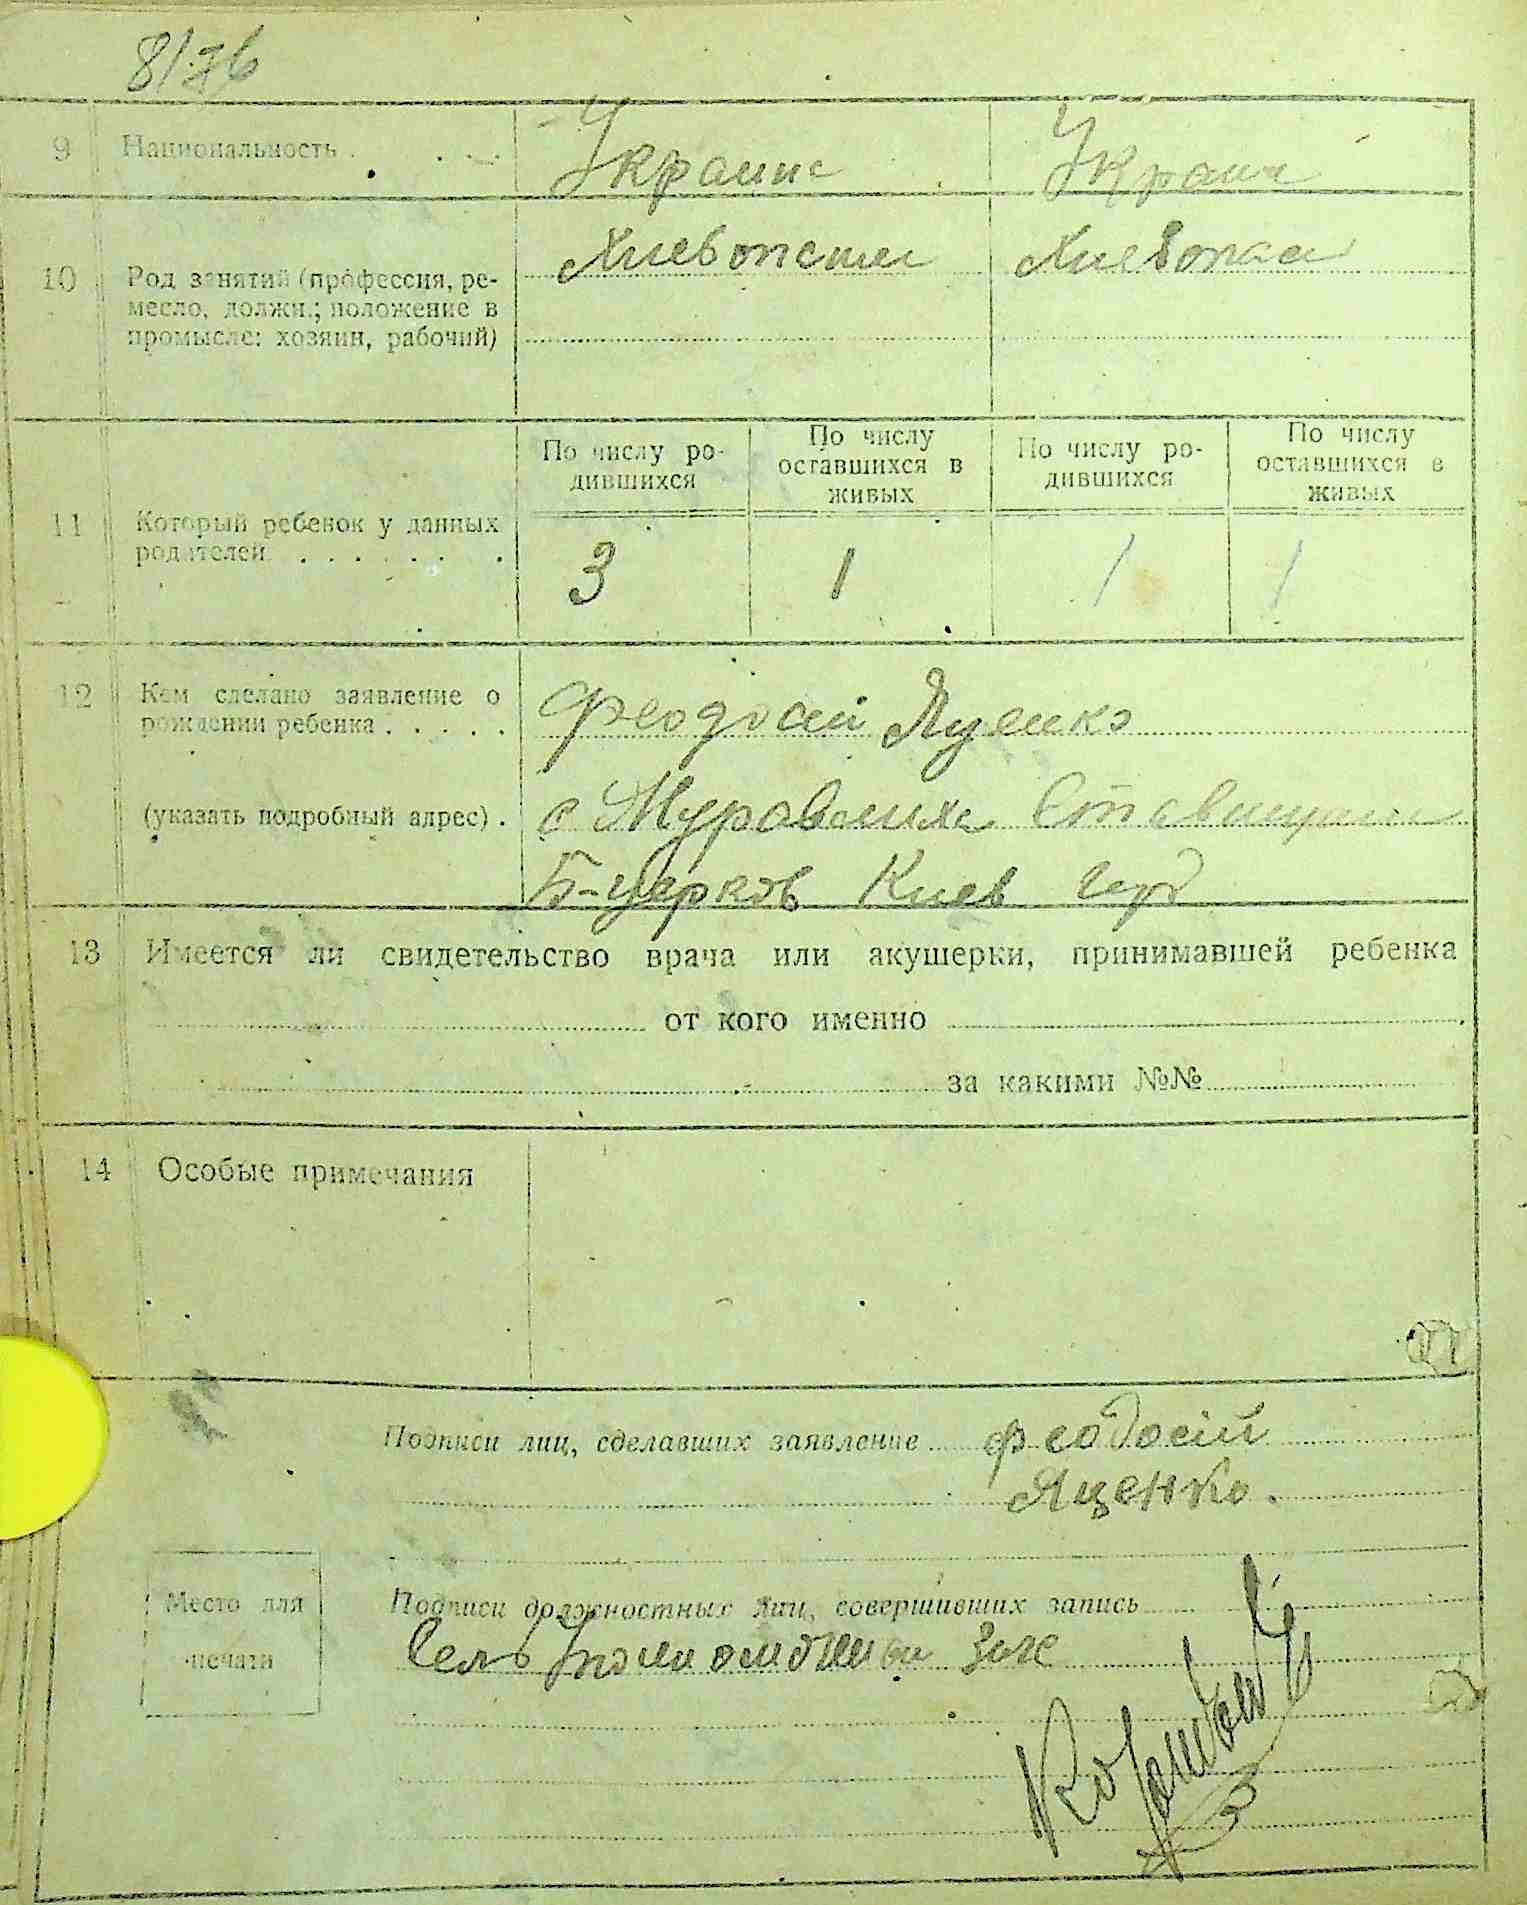 8/76
9 Национальность . . . . Украинс Украин
10 Род занятий (профессия, ре-
месло, должн.; положение в
промысле: хозяин, рабочий)
Хлебопаши Хлебопаш
11 Который ребенок у данных
родителей . . . . . . .
По числу ро-
дившихся
По числу
оставшихся в
живых
По числу ро-
дившихся
По числу
оставшихся в
живых
3 1 1 1
12 Кем сделано заявление о
рождении ребенка . . . . .
Феодосий Яценко
(указать подробный адрес) .
с Муравлиха Ставищан
Б-Церков Киев губ
13 Имеется ли свидетельство врача или акушерки, принимавшей ребенка
от кого именно
за какими №№
14 Особые примечания
Подписи лиц, сделавших заявление Феодосій
Яценко.
Место для
печати
Подписи должностных лиц, совершивших запись
Сель Уполномочный